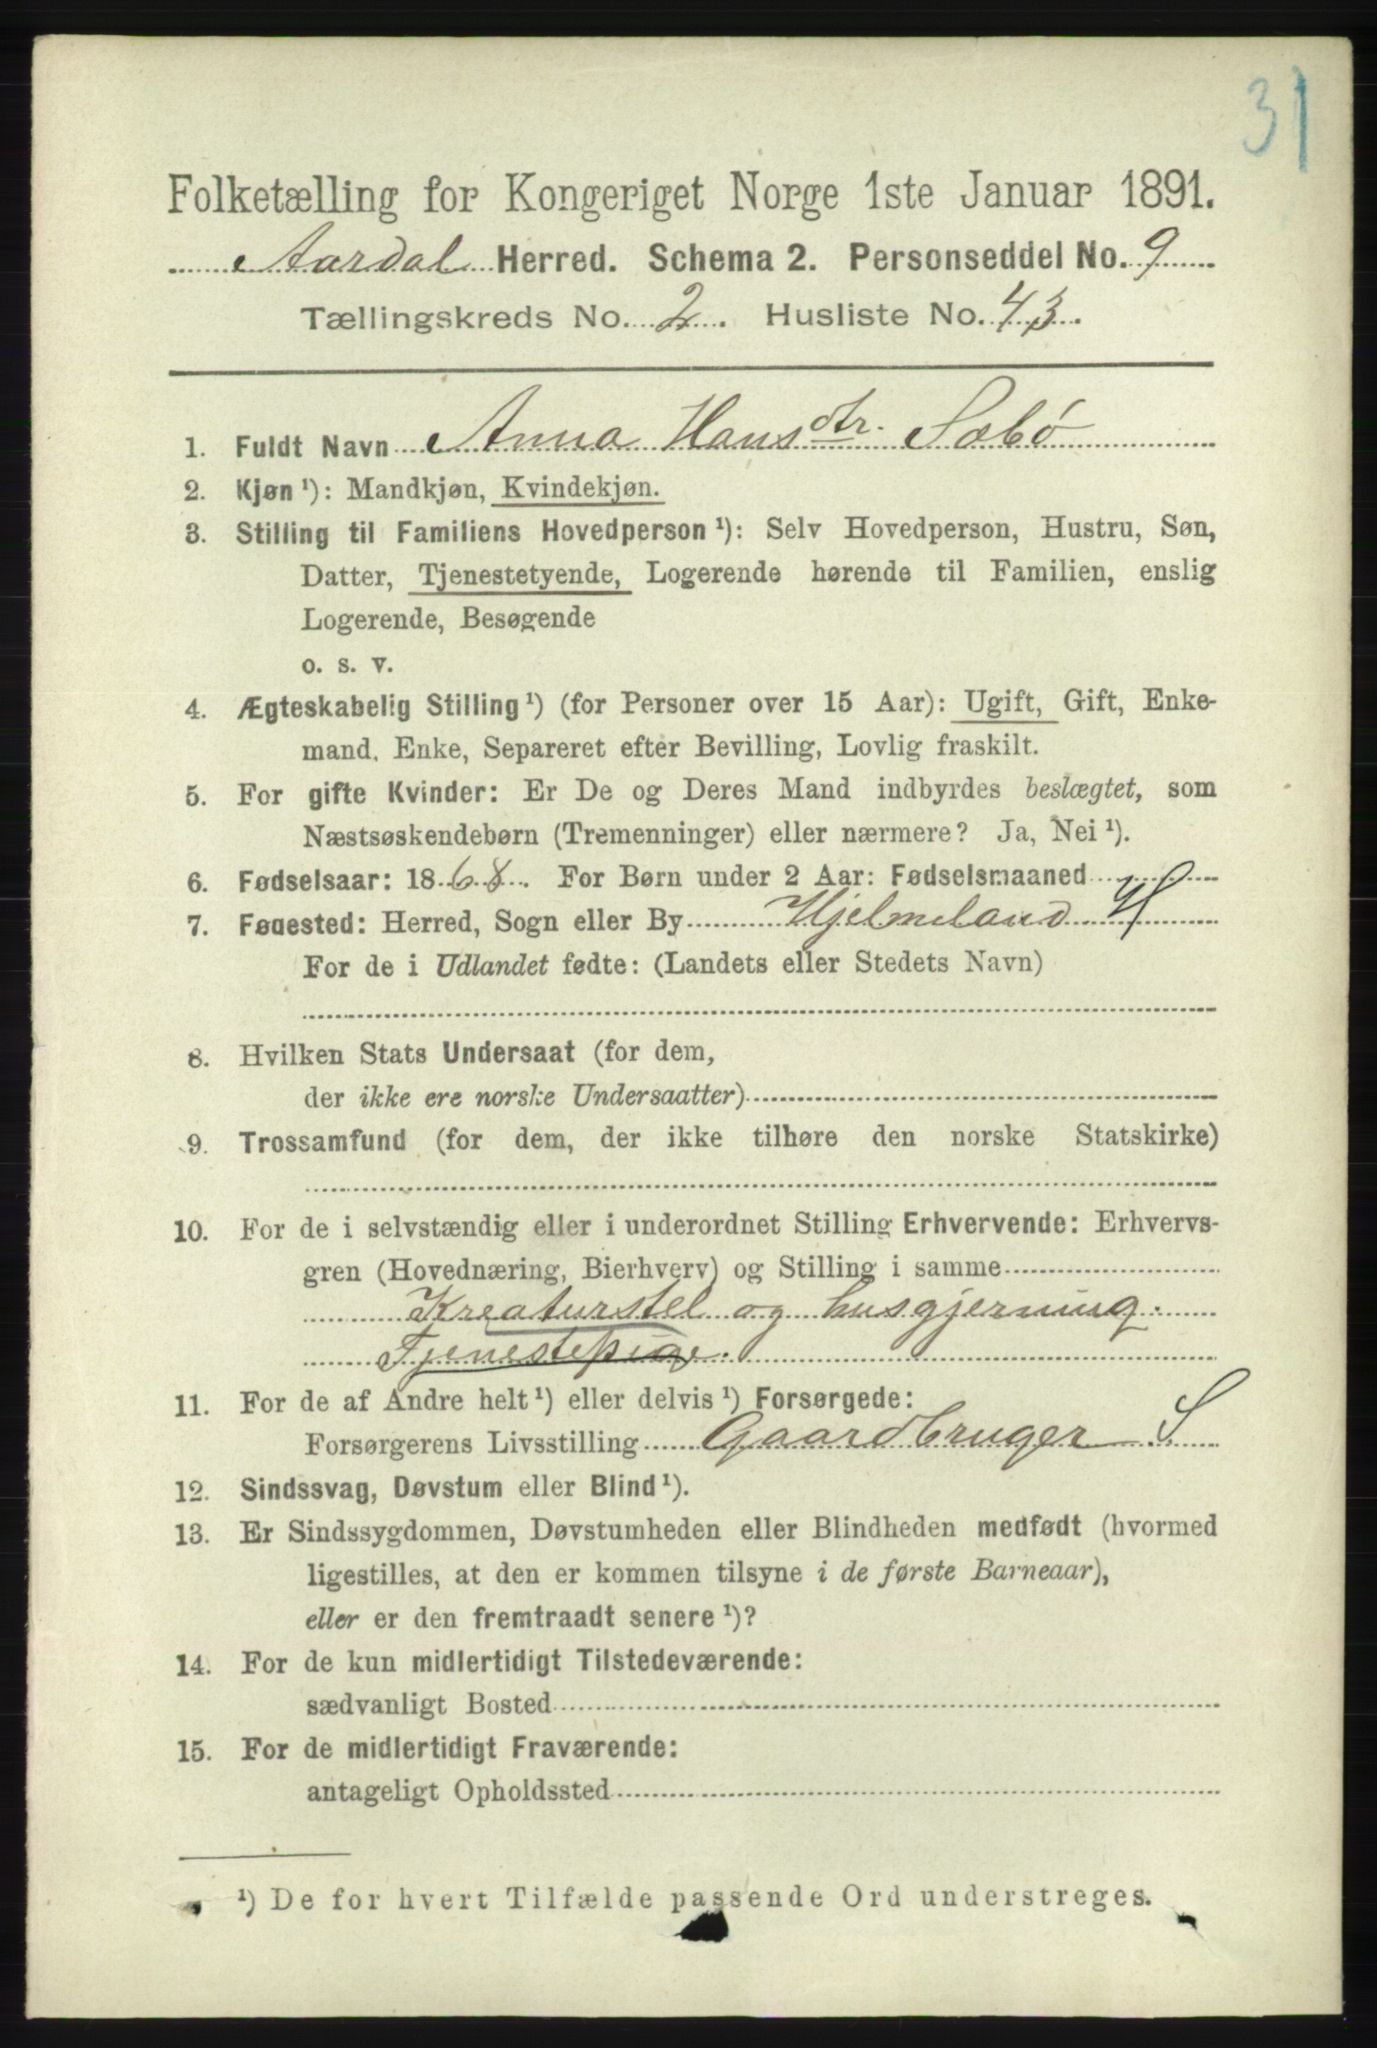 31
Folketælling for Kongeriget Norge 1ste Januar 1891.
Aardal Herred. Schema 2. Personseddel No. 9
Tællingskreds No. 2. Husliste No. 43.
1. Fuldt Navn Anna Hansdtr. Sæbø
2. Kjøn ¹): Mandkjøn, Kvindekjøn.
3. Stilling til Familiens Hovedperson ¹): Selv Hovedperson, Hustru, Søn,
Datter, Tjenestetyende, Logerende hørende til Familien, enslig
Logerende, Besøgende
o. s. v.
4. Ægteskabelig Stilling ¹) (for Personer over 15 Aar): Ugift, Gift, Enke-
mand, Enke, Separeret efter Bevilling, Lovlig fraskilt.
5. For gifte Kvinder: Er De og Deres Mand indbyrdes beslægtet, som
Næstsøskendebørn (Tremenninger) eller nærmere? Ja, Nei ¹).
6. Fødselsaar: 1868. For Børn under 2 Aar: Fødselsmaaned
7. Fødested: Herred, Sogn eller By Hjelmeland H
For de i Udlandet fødte: (Landets eller Stedets Navn)
8. Hvilken Stats Undersaat (for dem,
der ikke ere norske Undersaatter)
9. Trossamfund (for dem, der ikke tilhøre den norske Statskirke)
10. For de i selvstændig eller i underordnet Stilling Erhvervende: Erhvervs-
gren (Hovednæring, Bierhverv) og Stilling i samme
Kreaturstel og husgjerning.
Tjenestepige.
11. For de af Andre helt ¹) eller delvis ¹) Forsørgede:
Forsørgerens Livsstilling Gaardbruger S
12. Sindssvag, Døvstum eller Blind ¹).
13. Er Sindssygdommen, Døvstumheden eller Blindheden medfødt (hvormed
ligestilles, at den er kommen tilsyne i de første Barneaar),
eller er den fremtraadt senere ¹)?
14. For de kun midlertidigt Tilstedeværende:
sædvanligt Bosted
15. For de midlertidigt Fraværende:
antageligt Opholdssted
¹) De for hvert Tilfælde passende Ord understreges.